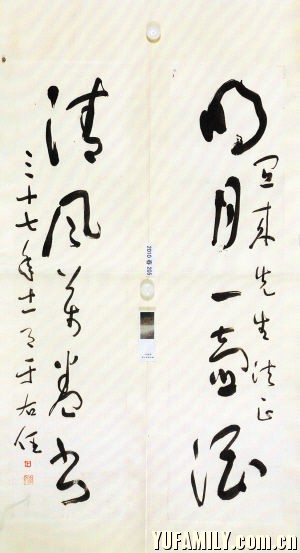 明月一壶酒
宣来先生法正
清风万卷书
三十七年十一月于右任
2010春 205
YUFAMILY.com.cn